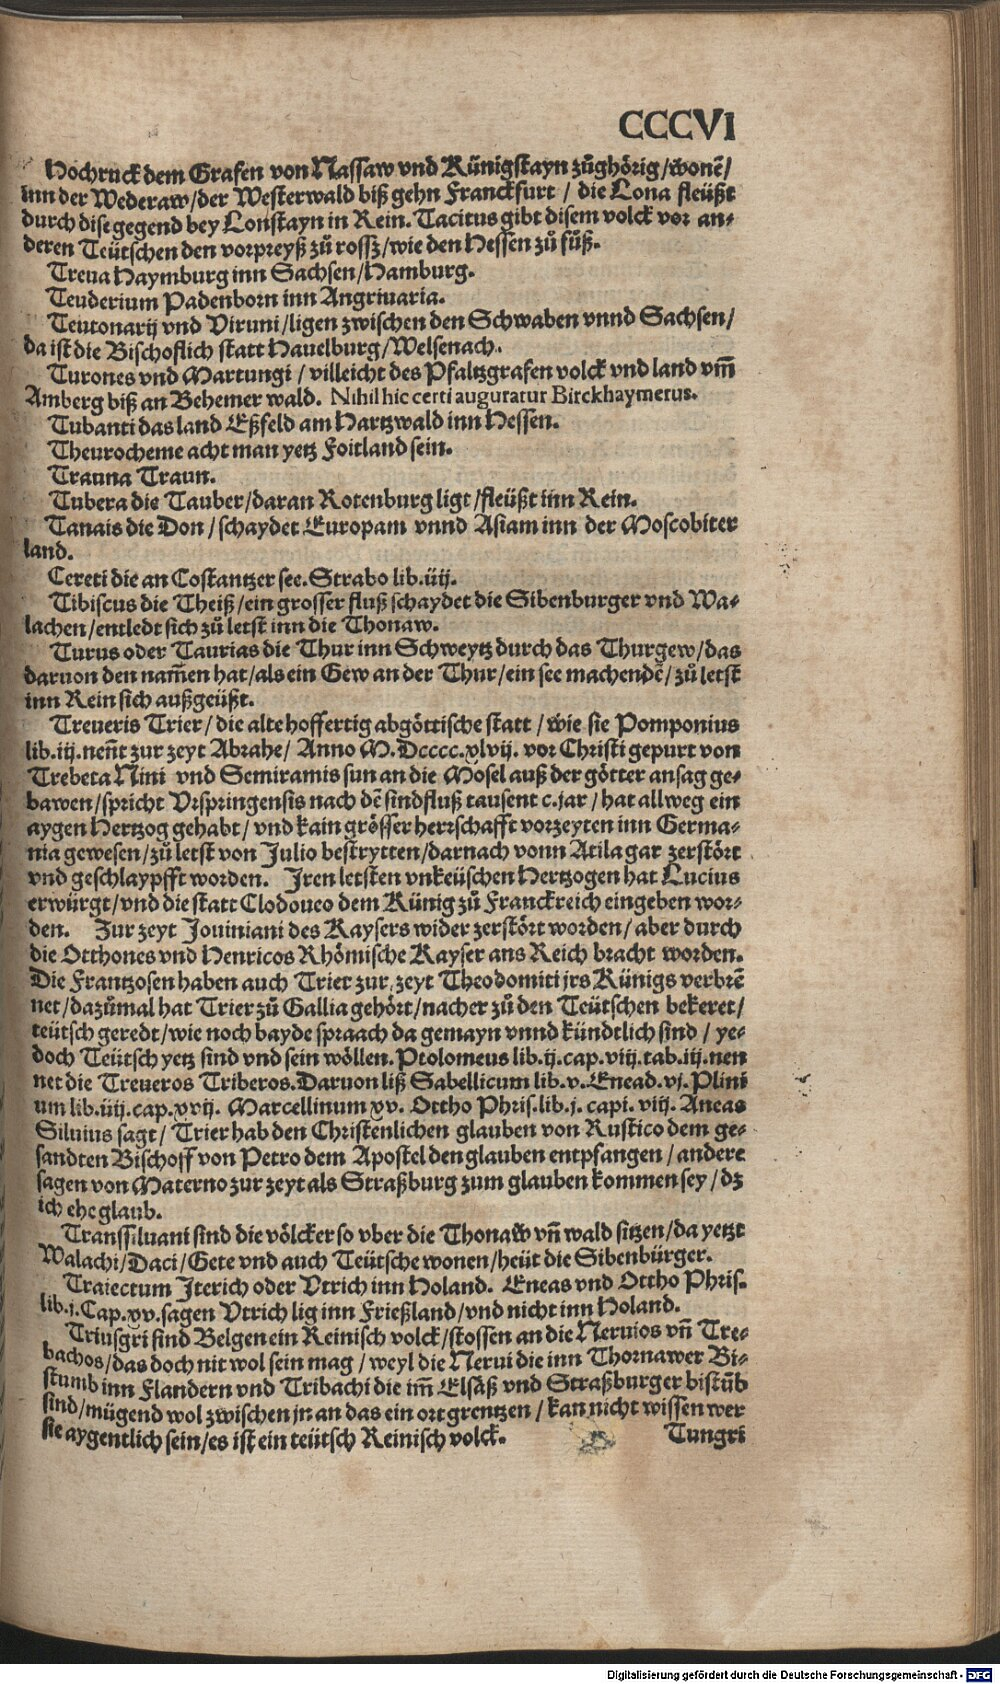 CCCVI
Hochruck dem Grafen von Nassaw vnd Künigstayn zůghörig/wonẽ/
inn der Wederaw/der Westerwald biß gehn Franckfurt / die Lona fleüßt
durch dise gegend bey Lonstayn in Rein. Tacitus gibt disem volck vor an-
deren Teütschen den vorpreyß zů rossz/wie den Hessen zů fůß.
Treua Haymburg inn Sachsen/Hamburg.
Teuderium Padenborn inn Angriuaria.
Teutonarij vnd Viruni/ligen zwischen den Schwaben vnnd Sachsen/
da ist die Bischoflich statt Hauelburg/Welsenach.
Turones vnd Martungi / villeicht des Pfaltzgrafen volck vnd land vm̃
Amberg biß an Behemer wald. Nihil hic certi auguratur Birckhaymerus.
Tubanti das land Eßfeld am Hartzwald inn Hessen.
Theurocheme acht man yetz Foitland sein.
Trauna Traun.
Tubera die Tauber/daran Rotenburg ligt/fleüßt inn Rein.
Tanais die Don/schaydet Europam vnnd Asiam inn der Moscobiter
land.
Cereti die an Costantzer see. Strabo lib.iiij.
Tibiscus die Theiß/ein grosser fluß schaydet die Sibenburger vnd Wa-
lachen/entledt sich zů letst inn die Thonaw.
Turus oder Taurias die Thur inn Schweytz durch das Thurgew/das
daruon den nam̃en hat/als ein Gew an der Thur/ein see machendẽ/zů letst
inn Rein sich außgeüßt.
Treueris Trier/die alte hoffertig abgöttische statt/wie sie Pomponius
lib.iij.nen̄t zur zeyt Abrahe/ Anno M.Dcccc.xlvij. vor Christi gepurt von
Trebeta Nini vnd Semiramis sun an die Mosel auß der götter ansag ge-
bawen/spricht Vrspringensis nach dẽ sindfluß tausent c.jar/hat allweg ein
aygen Hertzog gehabt/vnd kain grösser herrschafft vorzeyten inn Germa-
nia gewesen/zů letst von Julio bestrytten/darnach vonn Atila gar zerstört
vnd geschlaypfft worden. Jren letsten vnkeüschen Hertzogen hat Lucius
erwürgt/vnd die statt Clodoueo dem Künig zů Franckreich eingeben wor-
den. Zur zeyt Jouiniani des Kaysers wider zerstört worden/aber durch
die Otthones vnd Henricos Rhömische Kayser ans Reich bracht worden.
Die Frantzosen haben auch Trier zur zeyt Theodomiti jrs Künigs verbrẽ
net/dazůmal hat Trier zů Gallia gehört/nacher zů den Teütschen bekeret/
teütsch geredt/wie noch bayde spraach da gemayn vnnd kündtlich sind/ ye-
doch Teütsch yetz sind vnd sein wöllen. Ptolomeus lib.ij.cap.viij.tab.iij.nen
net die Treueros Triberos. Daruon liß Sabellicum lib.v.Enead.vj. Plini
um lib.iiij.cap.xvij. Marcellinum xv. Ottho Phris.lib.j. capi. viij. Aneas
Siluius sagt/ Trier hab den Christenlichen glauben von Rustico dem ge-
sandten Bischoff von Petro dem Apostel den glauben entpfangen/andere
sagen von Materno zur zeyt als Straßburg zum glauben kommen sey/dz
ich ehe glaub.
Transsiluani sind die völcker so vber die Thonaw vñ wald sitzen/da yetzt
Walachi/Daci/Gete vnd auch Teütsche wonen/heüt die Sibenbürger.
Traiectum Jterich oder Vtrich inn Holand. Eneas vnd Ottho Phris.
lib.j.Cap.xv.sagen Vtrich lig inn Frießland/vnd nicht inn Holand.
Triusgri sind Belgen ein Reinisch volck/stossen an die Neruios vñ Tre-
bachos/das doch nit wol sein mag/weyl die Nerui die inn Thornawer Bi-
stumb inn Flandern vnd Tribachi die im̃ Elsäß vnd Straßburger bistůb
sind/mügend wol zwischen jn an das ein ort grentzen/kan nicht wissen wer
sie aygentlich sein/es ist ein teütsch Reinisch volck.
Tungri
Digitalisierung gefördert durch die Deutsche Forschungsgemeinschaft - DFG